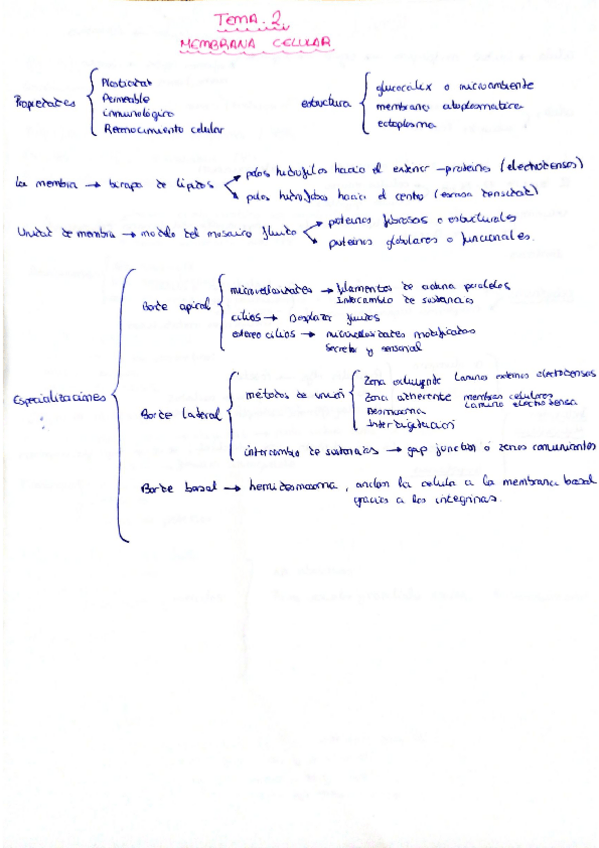 TEMA. 2
MEMBRANA CELULAR
Propiedades
Plasticidad
Permeable
inmunológico
Reconocimiento celular
estructura
glucocalix o microambiente
membrana citoplasmatica
ectoplasma
la membrana → bicapa de lípidos
polos hidrofilos hacia el exterior - proteínas (electrodensos)
polos hidrofobos hacia el centro (escasa densidad)
Unidad de membrana → modelo del mosaico fluido
proteinas fibrosas o estructurales
proteinas globulares o funcionales.
Especializaciones
Borde apical
microvellosidades → filamentos de actina paralelos
Intercambio de sustancias
cilios → Desplazar fluidos
estereocilios → microvellosidades modificadas
Secreta y sensorial
Borde lateral
métodos de unión
Zona ocluyente Laminas externas electrodensas
Zona adherente membranas celulares
Lamina electrodensa
Desmosoma
Interdigitación
intercambio de sustancias → gap junction o zonas comunicantes
Borde basal → hemidesmosoma, anclan la celula a la membrana basal
gracias a las integrinas.